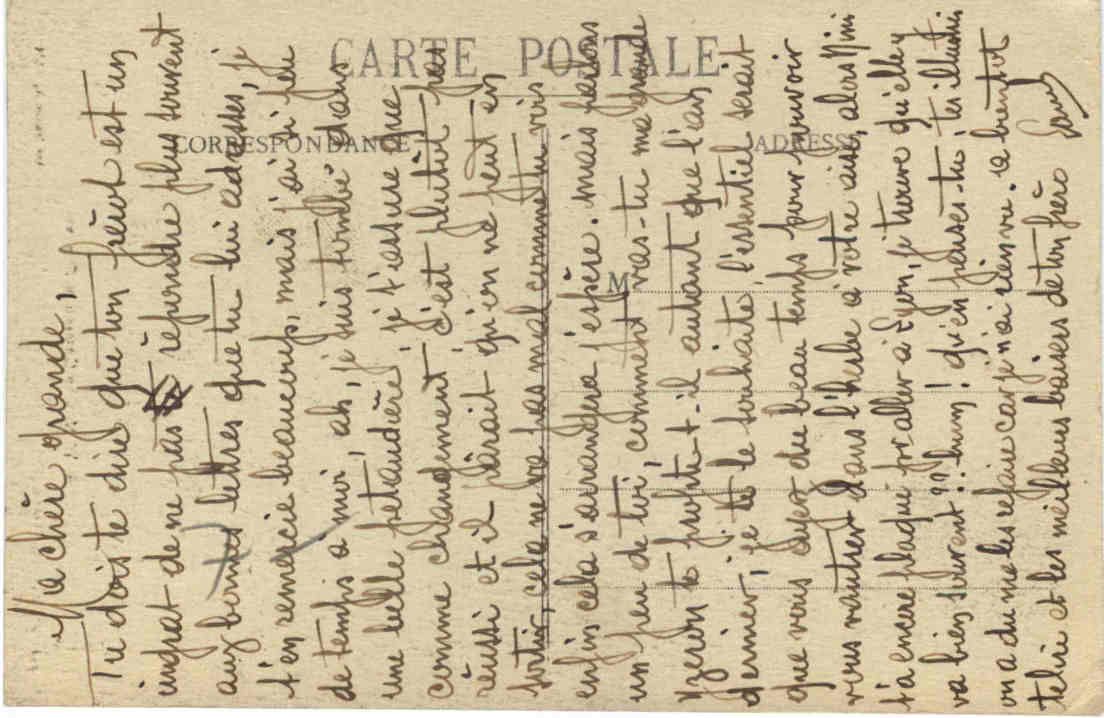 CARTE POSTALE
CORRESPONDANCE
ADRESSE
M
Ma chère grande,
Tu dois te dire que ton frérot est un
ingrat de ne pas répondre plus souvent
aux bonnes lettres que tu lui adresses, je
t'en remercie beaucoup, mais j'ai si peu
de temps a moi, ah, je suis tombé dans
une belle petaudière, je t'assure que
comme changement c'est plutot pas
réussi et il parait qu'on ne peut en
sortir, cela ne va pas mal comme tu vois
enfin cela s'arrangera j'espère. mais parlons
un peu de toi, comment vas-tu ma grande
Uzeron te profite-t-il autant que l'an
dernier, je te le souhaite, l'essentiel serait
que vous ayez du beau temps pour pouvoir
vous vautrer dans l'herbe à votre aise, alors Nini
t'a encore plaqué pr aller à Lyon, je trouve qu'elle y
va bien souvent ?? hum ! qu'en penses-tu, tes illustri
on a du me les refaire car je n'ai rien vu. a bientot
 et les meilleurs baisers de ton frèro